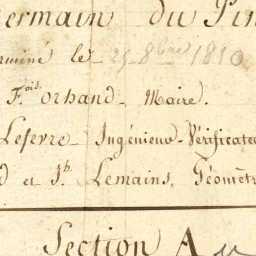 ermain du Pin
erminé le 25 8bre 1810
Fois. orhand Maire.
Lefevre Ingénieur-Vérificate
d et Jh. Lemains, Géomèt
Section A